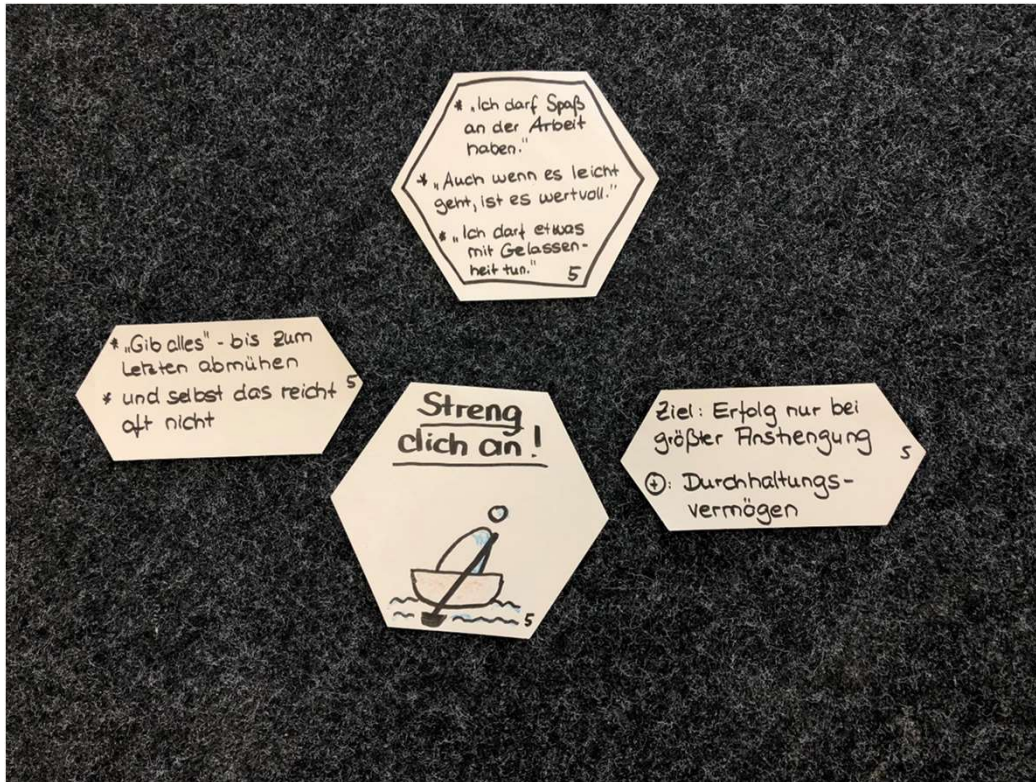 * „Ich darf Spaß
an der Arbeit
haben."
* „Auch wenn es leicht
geht, ist es wertvoll."
* „Ich darf etwas
mit Gelassen-
heit tun."
5
* „Gib alles" - bis zum
Letzten abmühen
* und selbst das reicht
oft nicht
5
Streng
dich an!
5
Ziel: Erfolg nur bei
größter Anstrengung
⊕: Durchhaltungs-
vermögen
5